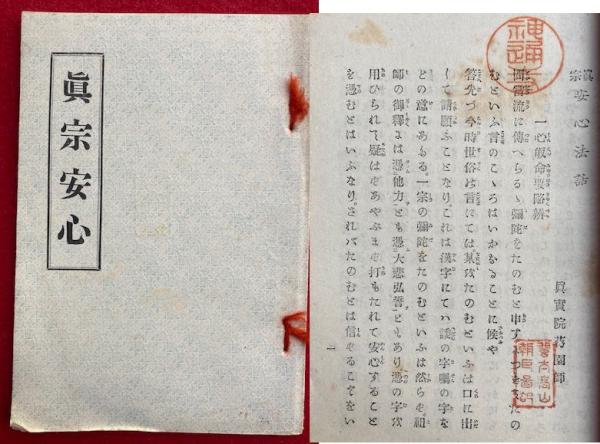 眞宗安心
眞宗安心法話
眞實院
一心歸命要略辨
問當流に傳へらるゝ彌陀をたのむと申す
たの
むといふ言のこゝろはいかやうなることに候や
答先づ今時世俗の言にては某をたのむといふは口に出
して請願ふことなり。これは漢字にては請の字囑の字を
との意にあたる。一宗の彌陀をたのむといふは然らず。祖
師の御釋には憑他力とも憑大悲弘誓ともあり憑の字を
用ひられて疑はずあやぶまず打もたれて安心すること
を憑むとはいふなり。さればたのむとは信ずることをい
一